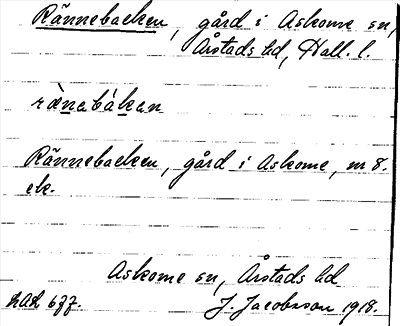 Rännebacken, gård i Askome sn,
Årstads hd, Hall. l.
rànebákan
Rännebacken, gård i Askome, nr 8.
ek.
Askome sn, Årstads hd
Had 677. J. Jacobsson 1918.